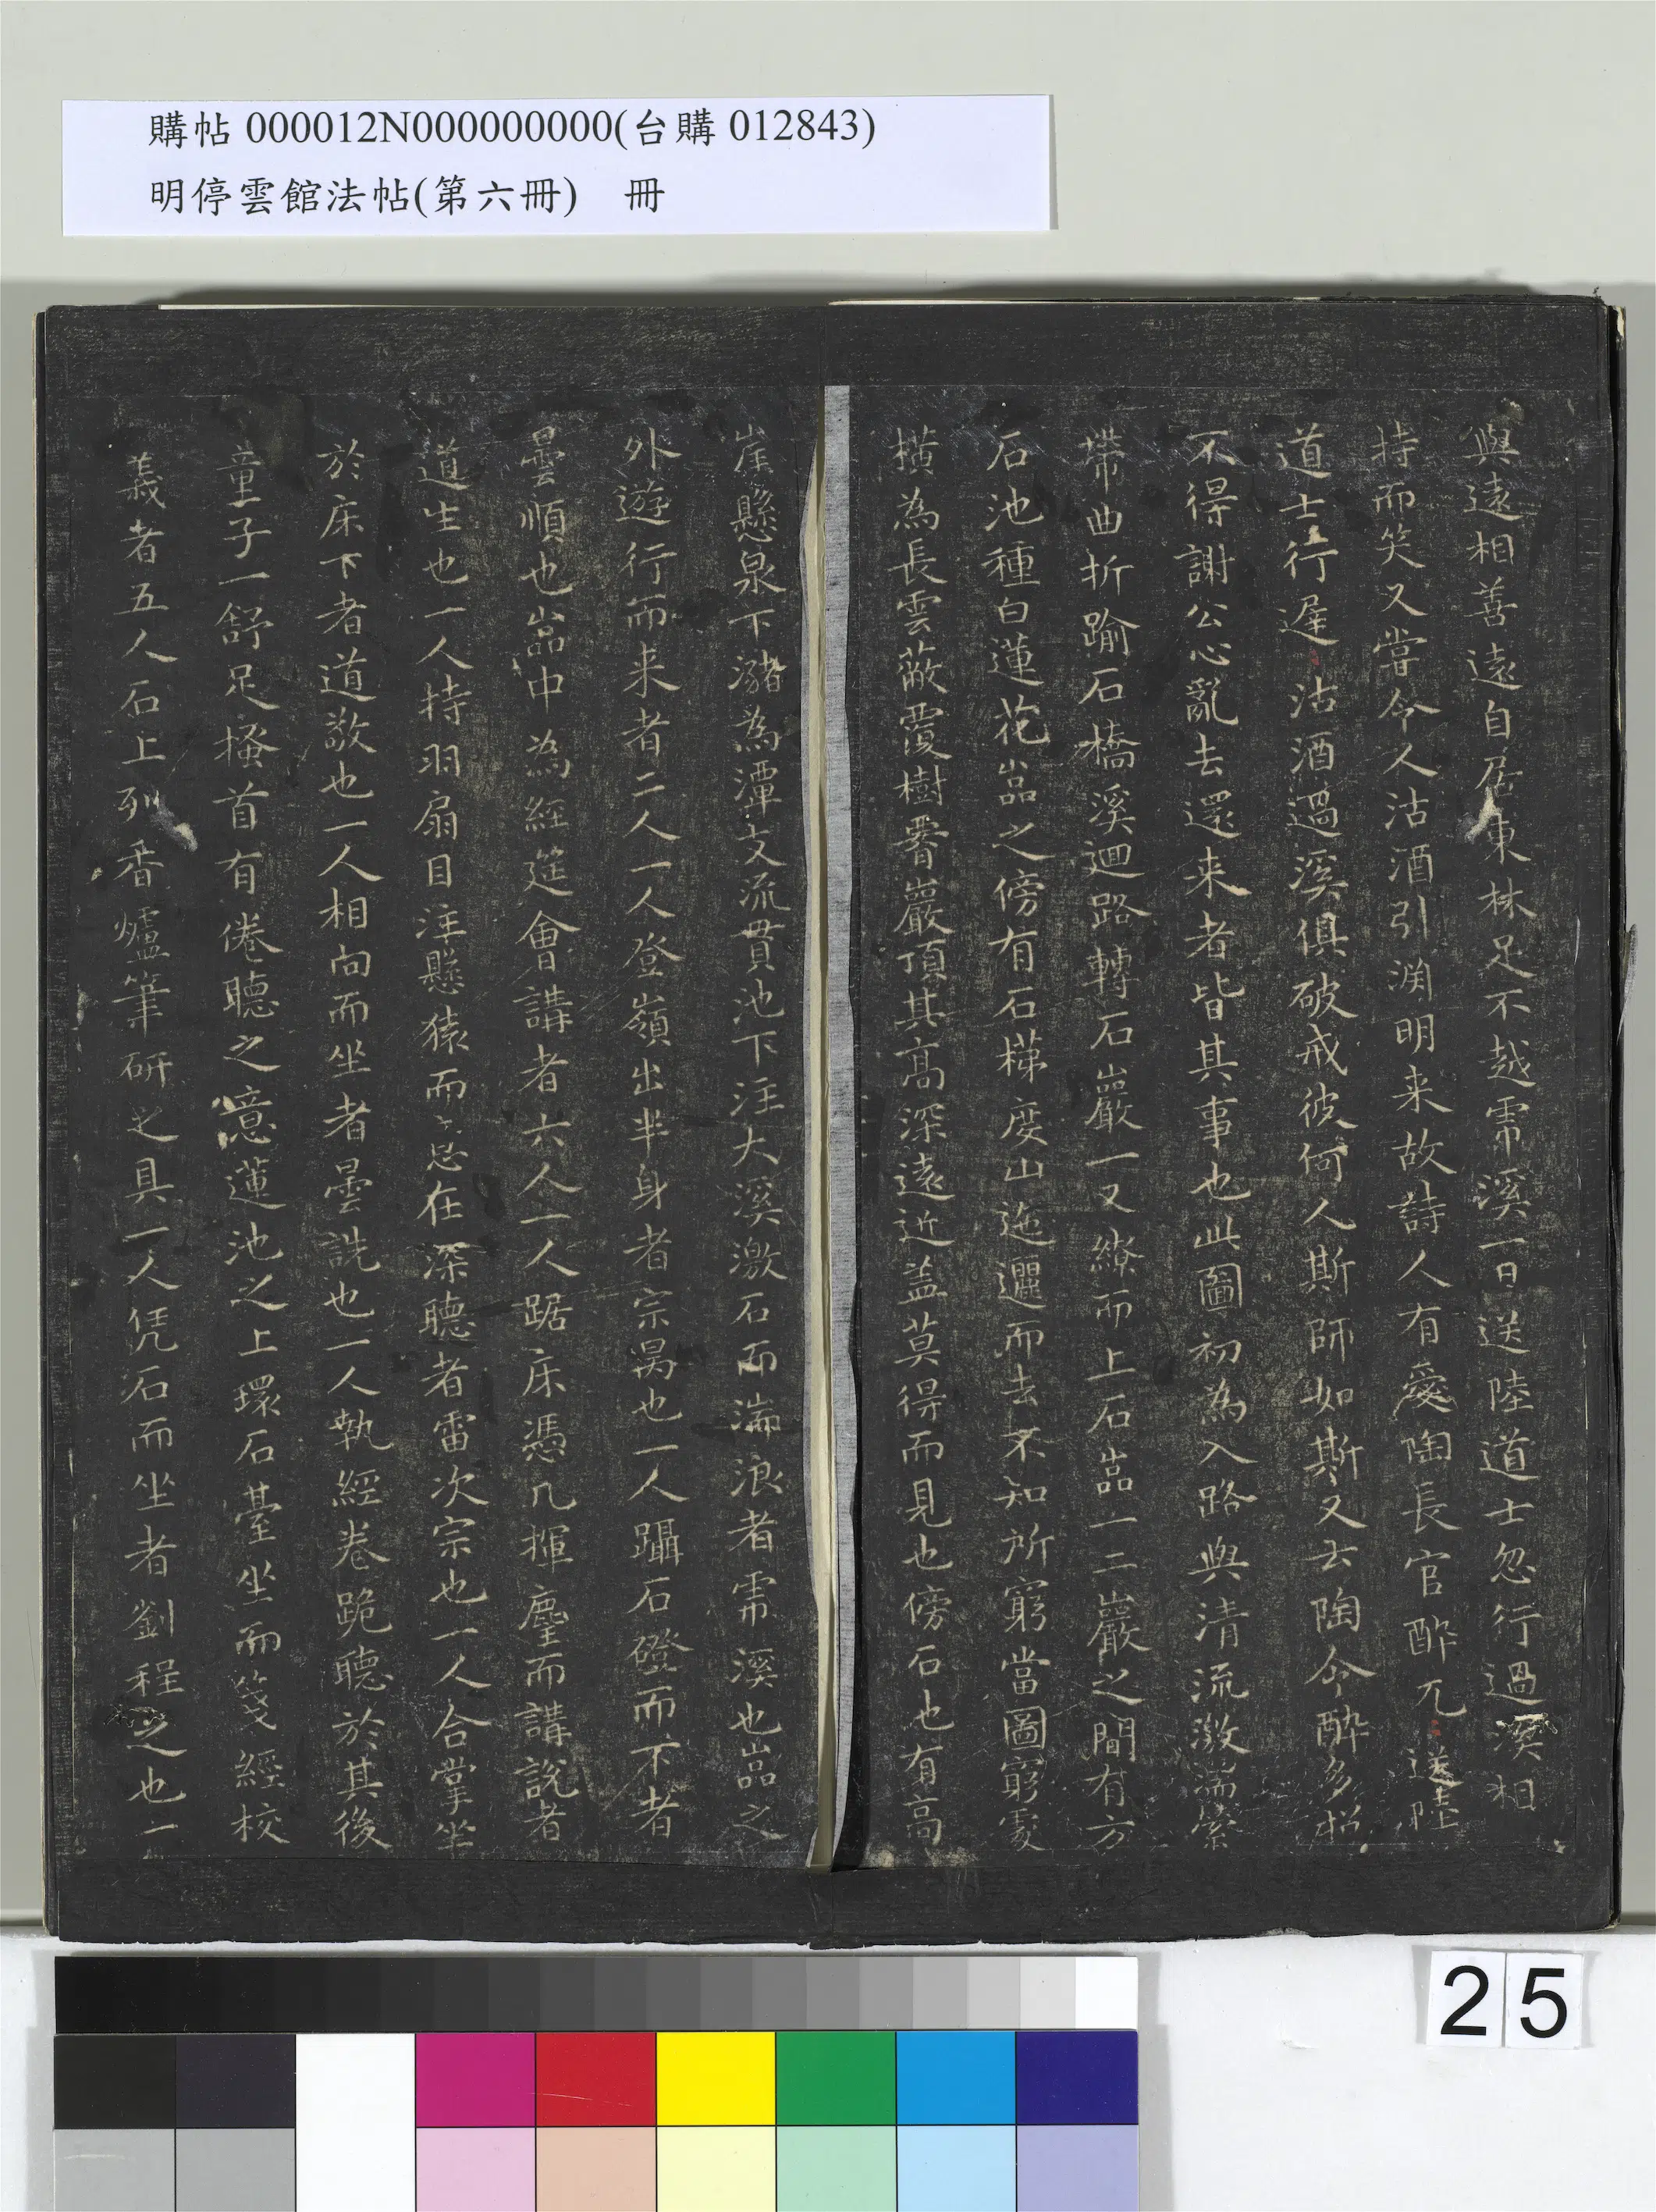 購帖 000012N000000000(台購 012843)
明停雲館法帖(第六冊) 冊
與遠相善遠自居東林足不越帍溪一日送陸道士忽行過溪相
持而笑又嘗令人沽酒引淵明来故詩人有愛陶長官醉兀兀送陸
道士行遲遲沽酒過溪俱破戒彼何人斯師如斯又云陶令醉多招
不得謝公心亂去還来者皆其事也此圖初為入路與清流激湍縈
帶曲折踰石橋溪迴路轉石巖一又繚而上石嵓一二巖之間有方
石池種白蓮花嵓之傍有石梯度山迤邐而去不知所窮當圖窮處
橫為長雲蔽覆樹脊巖頂其高深遠近盖莫得而見也傍石也有高
崖懸泉下瀦為潭支流貫池下注大溪激石而湍浪者帍溪也嵓之
外遊行而来者二人一人登嶺出半身者宗昺也一人躡石磴而下者
曇順也嵓中為經筵會講者六人一人踞床憑几揮麈而講說者
道生也一人持羽扇目注懸猿而意在深聽者雷次宗也一人合掌坐
於床下者道敬也一人相向而坐者曇詵也一人執經卷跪聽於其後
童子一舒足搔首有倦聽之意蓮池之上環石臺坐而箋經校
義者五人石上列香爐筆研之具一人凭石而坐者劉程之也一
25